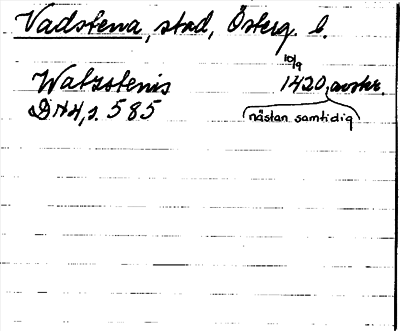 Vadstena, stad, Österg. l.
Watzstenis 10/9 1420, avskr.
DHH, s. 585 nästan samtidig